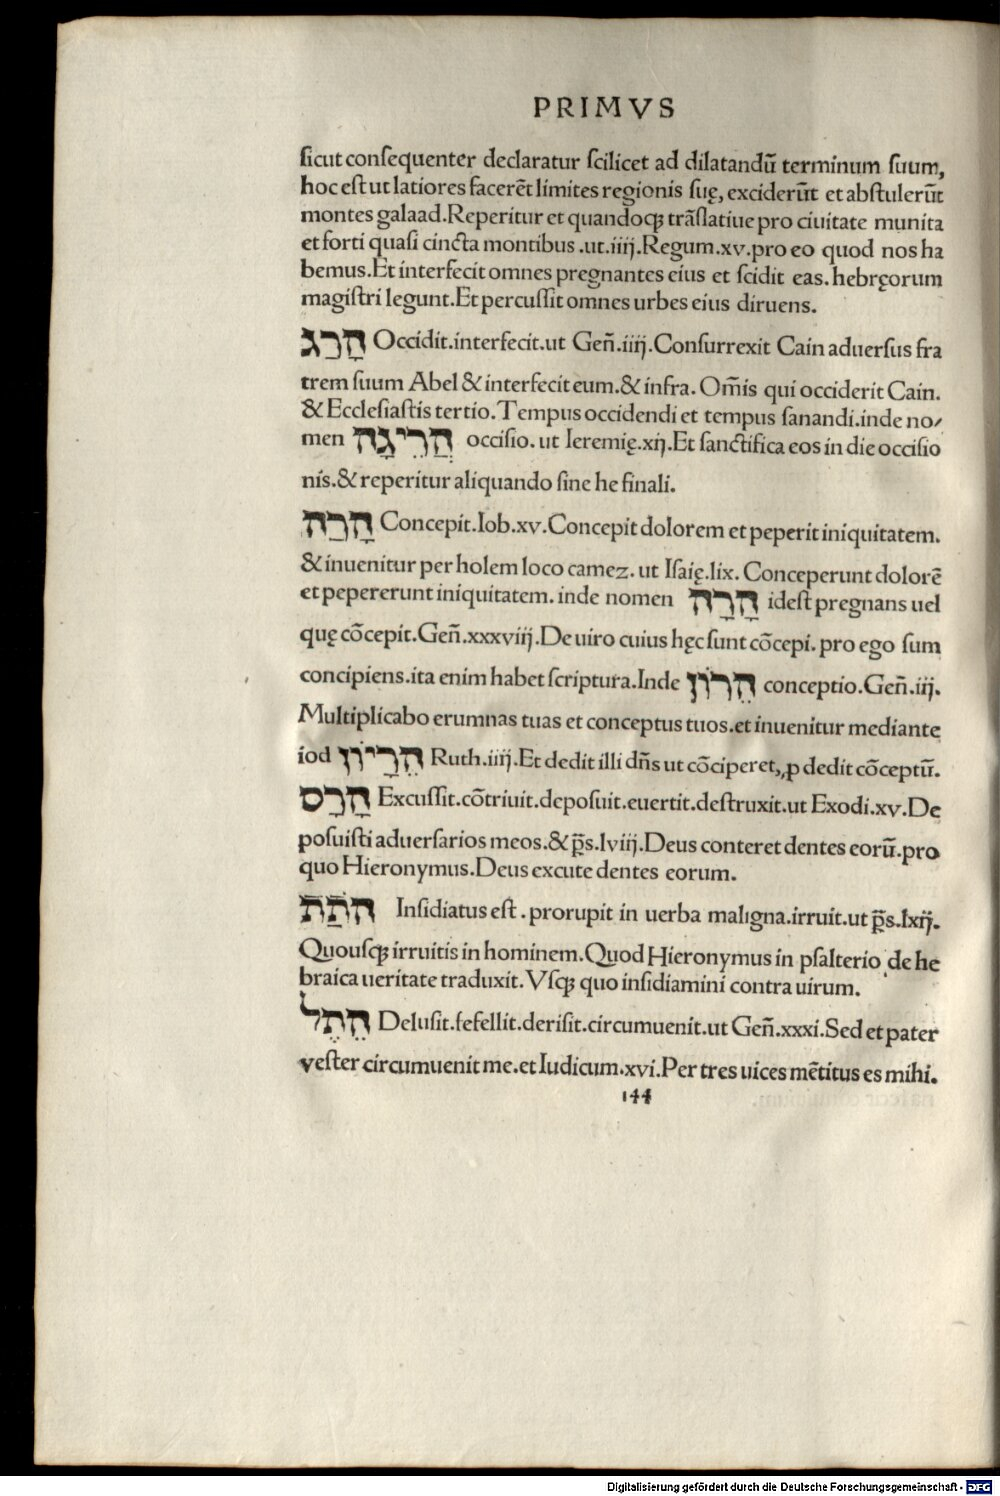 PRIMVS
sicut consequenter declaratur scilicet ad dilatandū terminum suum,
hoc est ut latiores facerēt limites regionis suę, exciderūt et abstulerūt
montes galaad.Reperitur et quandoqꝫ trāslatiue pro ciuitate munita
et forti quasi cincta montibus .ut.iiij.Regum.xv.pro eo quod nos ha
bemus.Et interfecit omnes pregnantes eius et scidit eas. hebręorum
magistri legunt.Et percussit omnes urbes eius diruens.
הָרַג Occidit.interfecit.ut Geñ.iiij.Consurrexit Cain aduersus fra
trem suum Abel & interfecit eum.& infra. Om̄is qui occiderit Cain.
& Ecclesiastis tertio.Tempus occidendi et tempus sanandi.inde no/
men הֲרֵיגָה occisio. ut Ieremię.xij.Et sanctifica eos in die occisio
nis.& reperitur aliquando sine he finali.
הָרַה Concepit.Iob.xv.Concepit dolorem et peperit iniquitatem.
& inuenitur per holem loco camez. ut Isaię.lix. Conceperunt dolorē
et pepererunt iniquitatem. inde nomen הָרָה idest pregnans uel
quę cōcepit.Geñ.xxxviij.De uiro cuius hęc sunt cōcepi. pro ego sum
concipiens.ita enim habet scriptura.Inde הֵרֹון conceptio.Geñ.iij.
Multiplicabo erumnas tuas et conceptus tuos.et inuenitur mediante
iod הֵרָיֹון Ruth.iiij.Et dedit illi dñs ut cōciperet, ꝓ dedit cōceptū.
הָרָס Excussit.cōtriuit.deposuit.euertit.destruxit.ut Exodi.xv.De
posuisti aduersarios meos.& p̄s.lviij.Deus conteret dentes eorū.pro
quo Hieronymus.Deus excute dentes eorum.
הֹתַת Insidiatus est . prorupit in uerba maligna.irruit.ut p̄s.lxij.
Quousqꝫ irruitis in hominem.Quod Hieronymus in psalterio de he
braica ueritate traduxit. Vsqꝫ quo insidiamini contra uirum.
הֵתֶל Delusit.fefellit.derisit.circumuenit.ut Geñ.xxxi.Sed et pater
vester circumuenit me.et Iudicum.xvi.Per tres uices mētitus es mihi.
144
Digitalisierung gefördert durch die Deutsche Forschungsgemeinschaft - DFG